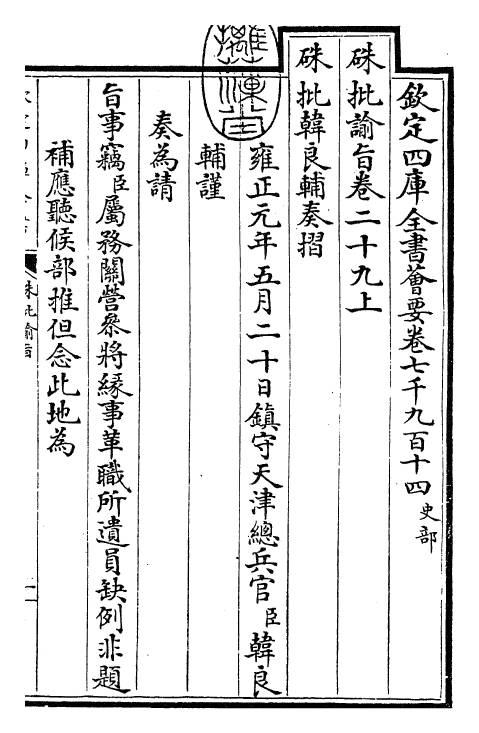 欽定四庫全書薈要卷七千九百十四 史部
硃批諭旨卷二十九上
硃批韓良輔奏摺
雍正元年五月二十日鎮守天津總兵官臣韓良
輔謹
奏為請
旨事竊臣屬務關營叅將緣事革職所遺員缺例非題
補應聽候部推但念此地為
硃批諭旨